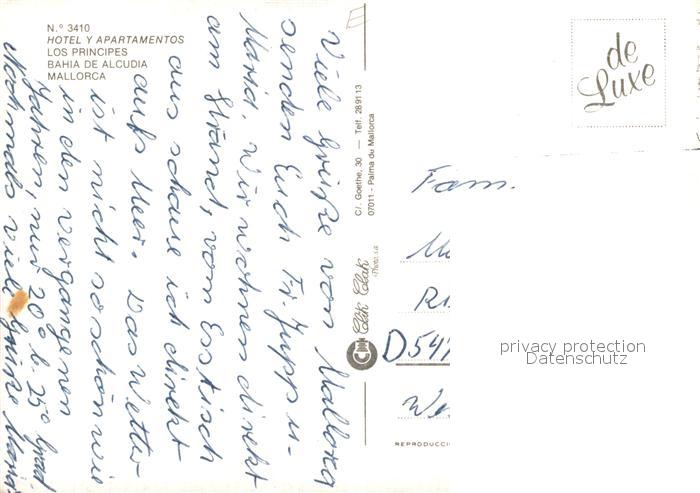 N.º 3410
HOTEL Y APARTAMENTOS
LOS PRINCIPES
BAHIA DE ALCUDIA
MALLORCA
Viele Grüße von Mallorca
senden Euch Fr. Jupp u-
Maria. Wir wohnen direkt
am Strand, vom Esstisch
aus schaue ich direkt
aufs Meer. Das Wetter
ist nicht so schön wie
in den vergangenen
Jahren, nur 20° b. 25° Grad
Nochmals viele Grüße Maria
C/. Goethe, 30 — Telf. 289113
07011 - Palma de Mallorca
Clik Clak
Photo, s.a.
REPRODUCCI
de
Luxe
Fam.
D541
We
privacy protection
Datenschutz